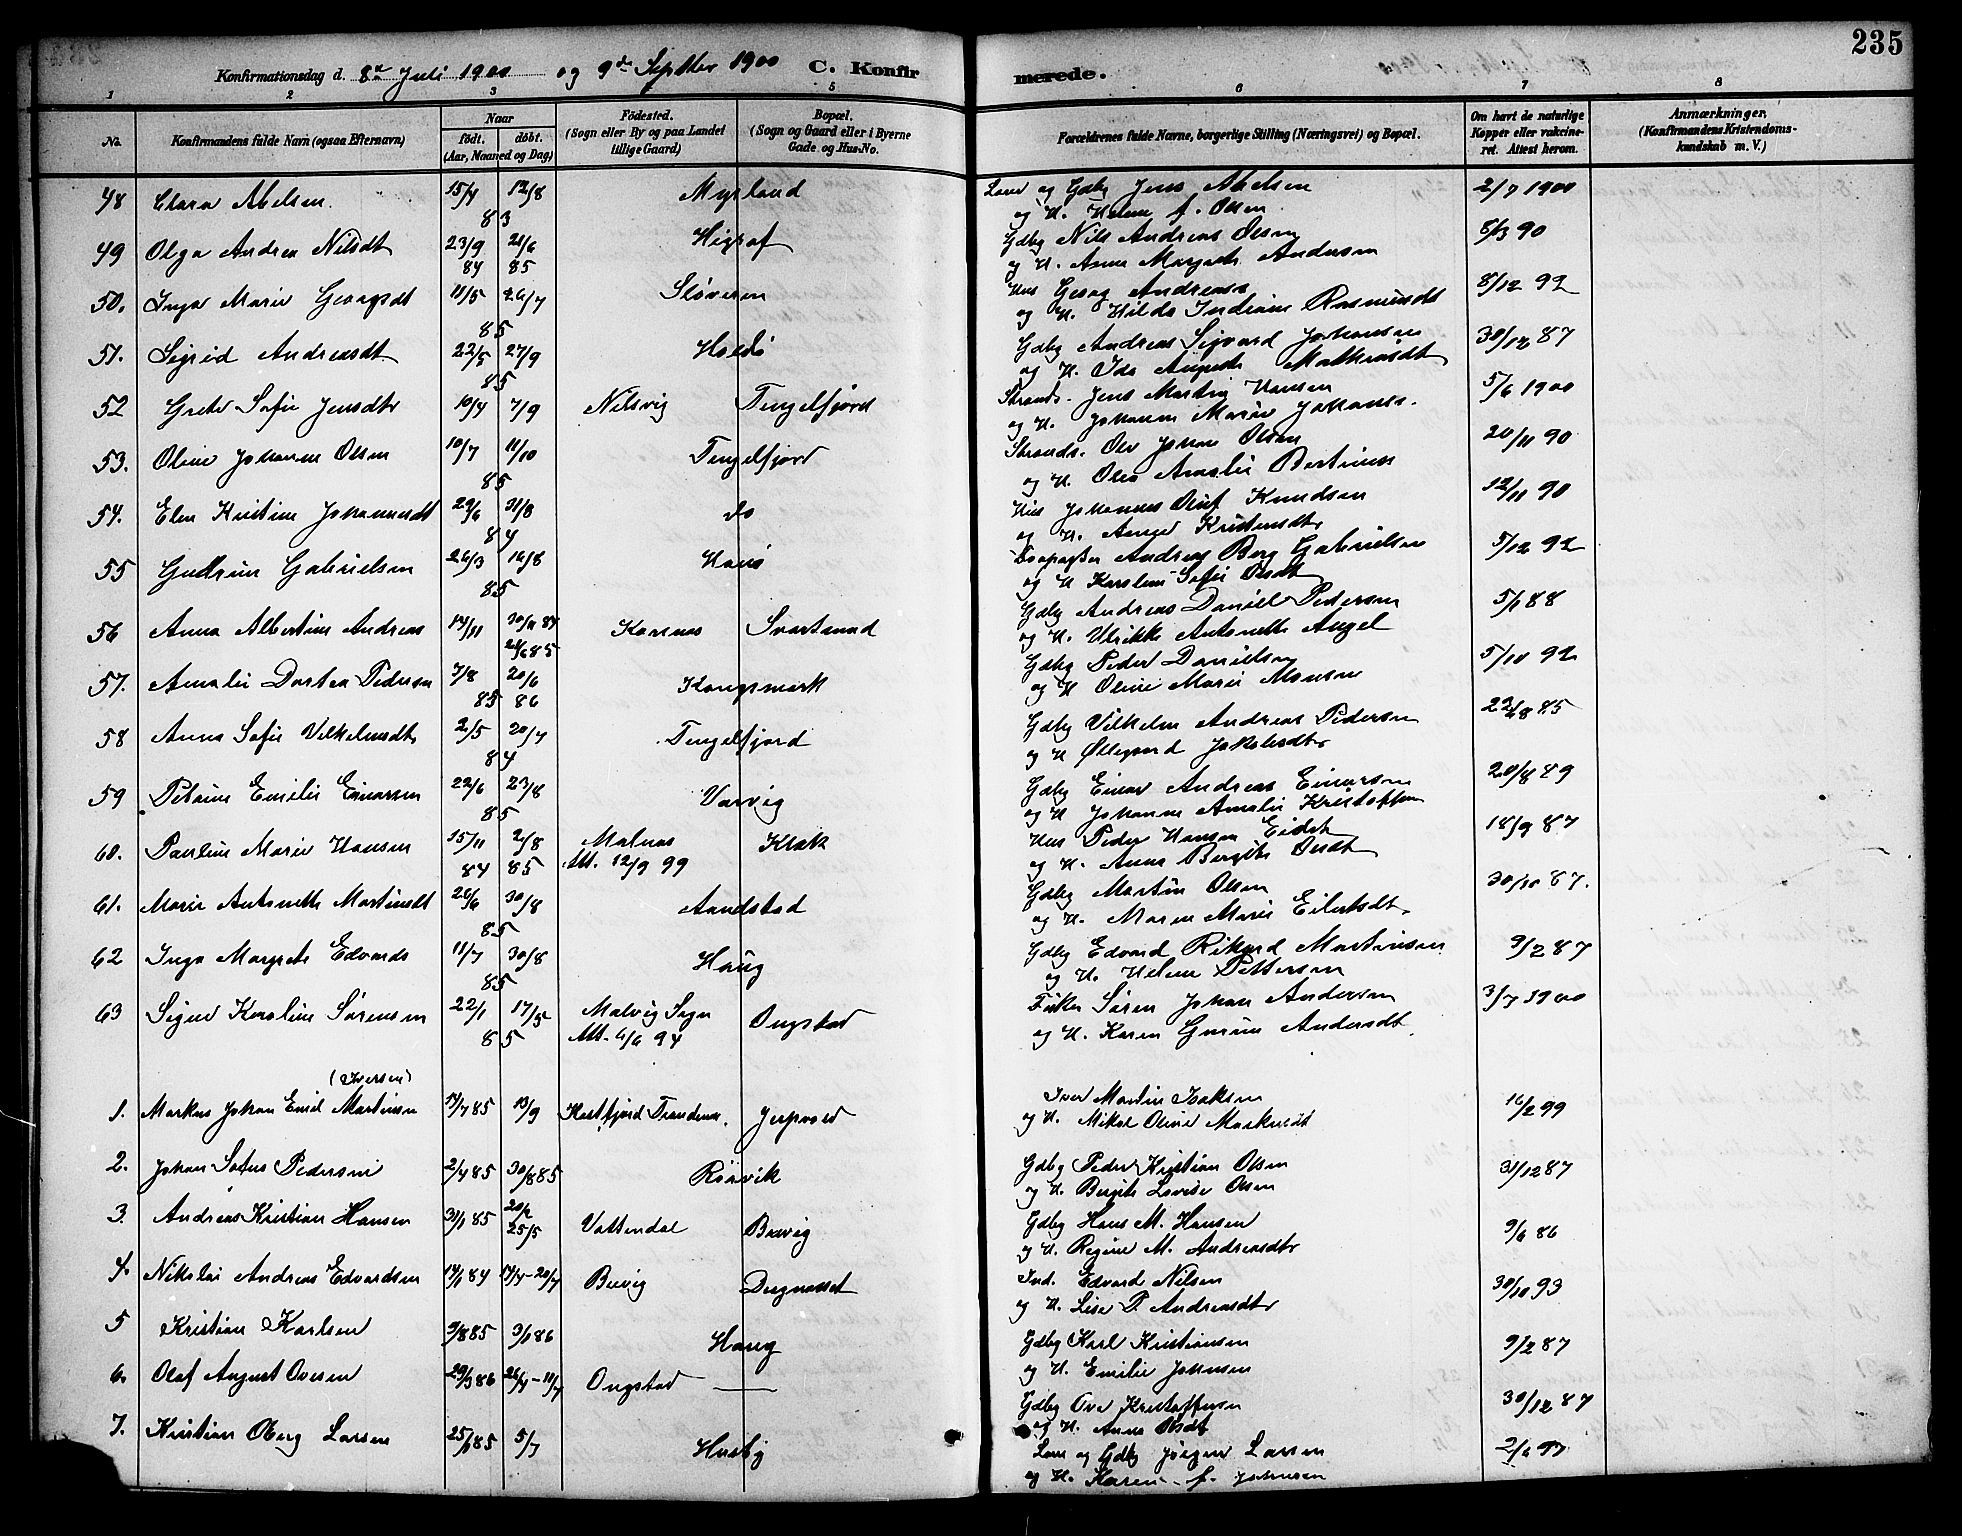 235
Konfirmationsdag d. 8de Juli 1900 og 9de Septbr 1900 C. Konfirmerede.
1 2 3 5 6 7 8
No. Konfirmandens fulde Navn (ogsaa Efternavn) Naar født. døbt. (Aar, Maaned og Dag) Födested. (Sogn eller By og paa Landet tillige Gaard) Bopæl. (Sogn og Gaard eller i Byerne Gade og Hus-No. Forældrenes fulde Navne, borgerlige Stilling (Næringsvei) og Bopæl. Om havt de naturlige Kopper eller vakcineret. Attest herom. Anmærkninger. (Konfirmandens Kristendomskundskab m. V.)
48 Clara Abelsen 15/4 12/8 Myrland og Gdbg Jens Abelsen 2/7 1900
83 og H. Helene f. Olsen
49 Olga Andrea Nilsdt 23/9 21/6 Higraf Gdbg Nils Andreas Olsen 5/3 90
84 85 og H. Anna Margrete Andersen
50. Inga Marie Georgsdt 11/5 26/7 Sløveren Hus Georg Andreas 8/12 92
85 og H. Hilda Indiane Rasmusdt
51. Sigrid Andreasdt 22/5 27/9 Holdø Gdbg Andreas Sigvard Johansen 30/12 87
85 og H. Ida Augusta Mathiasdt
52 Grete Sofie Jensdtr 10/4 7/9 Nilsvig Tengelfjord Strands. Jens Martin Hansen 5/6 1900
og H. Johanna Marie Johans.
53. Oline Johanne Olsen 10/7 11/10 Tengelfjord Strands. Ole Johan Olsen 20/11 90
85 og H. Olea Amalie Bertines
54. Elen Kristine Johannesdt 29/6 31/8 do Hus Johannes Oluf Knudsen 12/11 90
84 og H. Kristensdtr
55 Gudrun Gabrielsen 26/3 16/8 Hanø Andreas Berg Gabrielsen 5/12 92
85 og H Karoline Sofie Olsdt
56 Anna Albertine Andreas 14/11 30/11 84 Korsnes Svartsund Gdbg Andreas Daniel Pedersen 5/1 88
21/6 85 og H. Ulrikke Antonette Angel
57. Amalie Dortea Pedersen 7/8 20/6 Kongsmark Gdbg Peder Danielsen 5/10 92
85 86 og H Oline Marie Monsen
58 Anna Sofie Vilhelmsdtr 2/5 20/7 Tengelfjord Gdbg Vilhelm Andreas Pedersen 22/8 85
84 og H Øllegaard Jakobsdtr
59 Petrine Emilie Einarsen 22/6 23/8 Varvig Gdbg Einar Andreas Einarsen 20/8 89
85 og H Johanna Amalie Kristoffersen
60. Pauline Marie Hansen 15/11 2/8 Malnes Klak Hus Peder Hansen Eidet 18/9 87
84 85 Att. 12/9 99 og H. Anna Bergitte Olsdt
61. Marie Antonette Martinsdt 26/6 30/8 Aandstad Gdbg Martin Olsen 30/10 87.
85 og H. Maren Marie Eilertsdt.
62 Inga Margrete Edvards 11/7 30/8 Haug Gdbg Edvard Rikard Martinsen 9/2 87
85 og H. Helene Pettersen
63 Signe Karoline Sørensen 22/1 17/5 Malvig Sogn Ongstad Fisker Søren Johan Andersen 3/7 1900
85 Att. 6/6 94 og H. Karen Gurine Andersdt.
(Iversen)
1. Markus Johan Emil Martinsen 14/7 85 13/9 Kastfjord Trondenes. Iver Martin Isaksen 16/2 99
og H. Mikal Oline Markusdt
2. Johan Sofus Pedersen 2/4 85 30/8 85 Rørvik Gdbg Peder Kristian Olsen 31/12 87
og H. Bergitte Lovise Olsen
3. Andreas Kristian Hansen 31/1 85 20/2 25/5 Vottendal Buvig Gdbg Hans M. Hansen 9/6 86
og H. Regine M. Andreasdtr
4. Nikolai Andreas Edvardsen 14/1 84 14/4 – 20/7 Buvig Ind. Edvard Nilsen 30/10 93
og H. Lise P. Andreasdtr
5 Kristian Karlsen 9/8 85 3/1 86 Haug Gdbg Karl Kristiansen 9/2 87
og H. Emilie Johnsen
6. Olaf August Ovesen 29/3 86 26/4 – 11/7 Ongstad — Gdbg Ove Kristoffersen 30/12 87
og H. Anna Olsdt
7. Kristian Oberg Larsen 25/1 85 5/7 Husby og Gdbg Jørgen Larsen 2/6 97
og H. Karen f. Johnsen